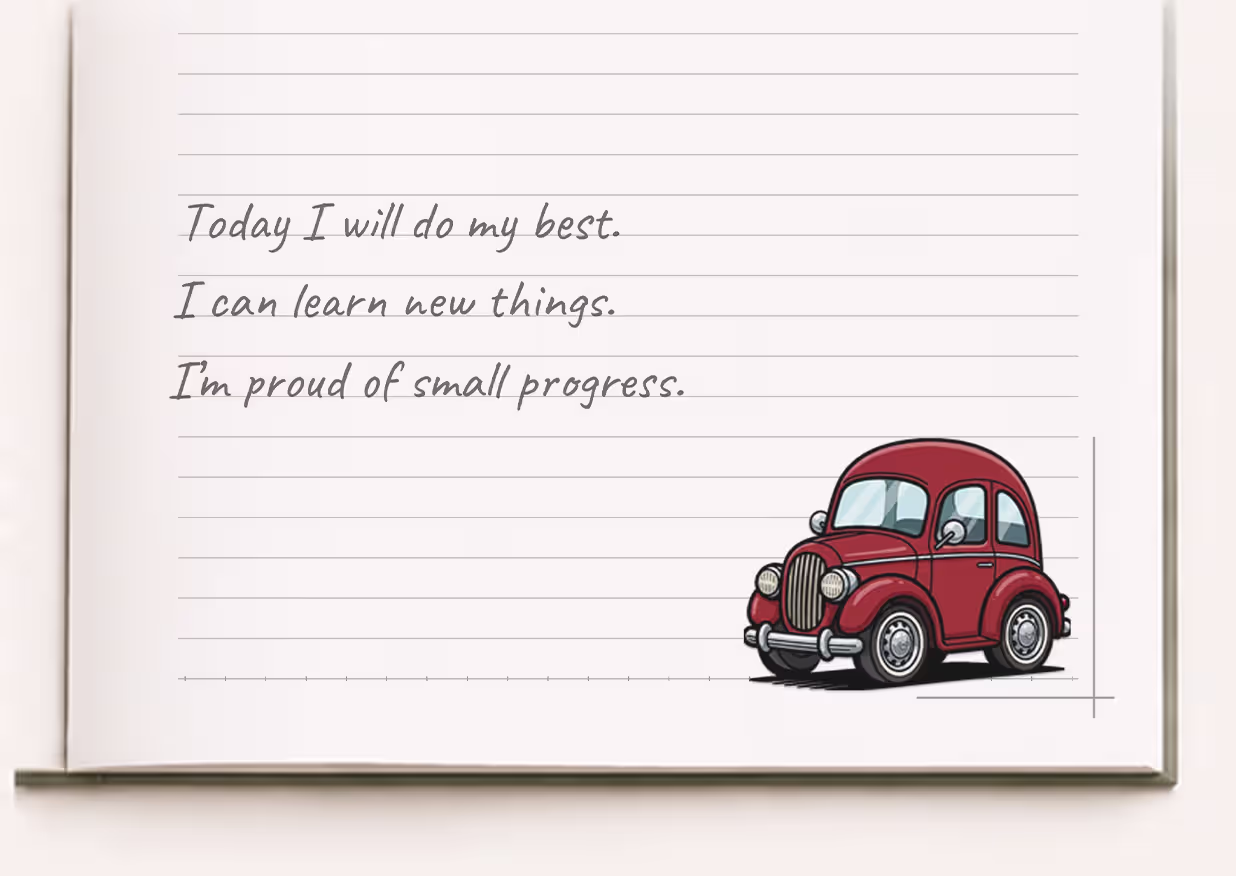 Today I will do my best.
I can learn new things.
I'm proud of small progress.